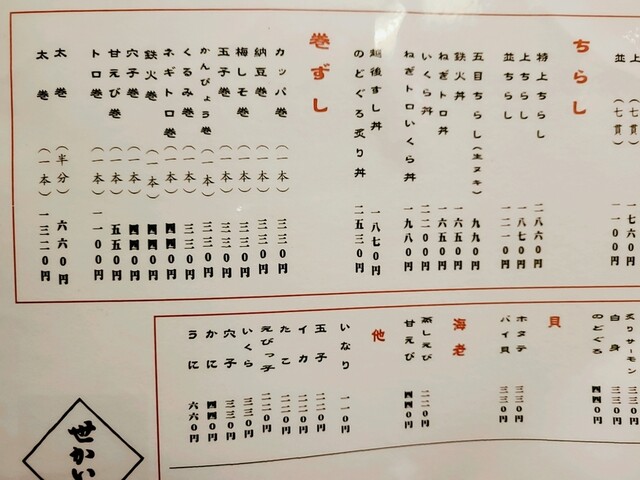 上
並 (七貫) 一七六〇円
一一〇〇円
ちらし
特上ちらし 二八六〇円
上ちらし 一八七〇円
並ちらし 一二一〇円
五目ちらし(生ヌキ) 九九〇円
鉄火丼 一六五〇円
ねぎトロ丼 一六五〇円
いくら丼 二二〇〇円
ねぎトロいくら丼 一九八〇円
越後すし丼 一八七〇円
のどぐろ炙り丼 二五三〇円
巻ずし
カッパ巻 (一本) 三三〇円
納豆巻 (一本) 三三〇円
梅しそ巻 (一本) 三三〇円
玉子巻 (一本) 三三〇円
かんぴょう巻 (一本) 三三〇円
くるみ巻 (一本) 三三〇円
ネギトロ巻 (一本) 四四〇円
鉄火巻 (一本) 四四〇円
穴子巻 (一本) 四四〇円
甘えび巻 (一本) 五五〇円
トロ巻 (一本) 一一〇〇円
太巻 (半分) 六六〇円
太巻 (一本) 一三二〇円
炙りサーモン 三三〇円
白身 三三〇円
のどぐろ 四四〇円
貝
ホタテ 三三〇円
バイ貝 三三〇円
海老
蒸しえび 二二〇円
甘えび 四四〇円
他
いなり 一一〇円
玉子 二二〇円
イカ 二二〇円
たこ 二二〇円
えびっ子 二二〇円
いくら 三三〇円
穴子 三三〇円
かに 四四〇円
うに 六六〇円
せかい